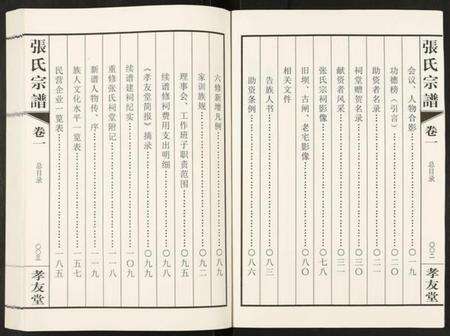 張氏宗譜
卷一
总目录
〇〇二
孝友堂
会议、人物合影……〇一九
功德榜（引言）……〇二〇
助资者名录……
祠堂赠贺名录……〇三〇
献资者风采……〇三一
张氏宗祠影像……〇七八
旧坝、古闸、老宅影像……〇八〇
相关文件
告族人书……
助资条例……〇八六
六修新增凡例……〇八九
家训族规……〇九二
理事会、工作班子职责范围……〇九五
续谱修祠费用支出明细……
《孝友堂简报》摘录……〇九九
续谱建祠纪实……一〇九
重修张氏祠堂附记……一一八
新谱人物传、序……一一九
族人文化水平一览表……一五七
民营企业一览表……一八五
張氏宗譜
卷一
总目录
〇〇三
孝友堂